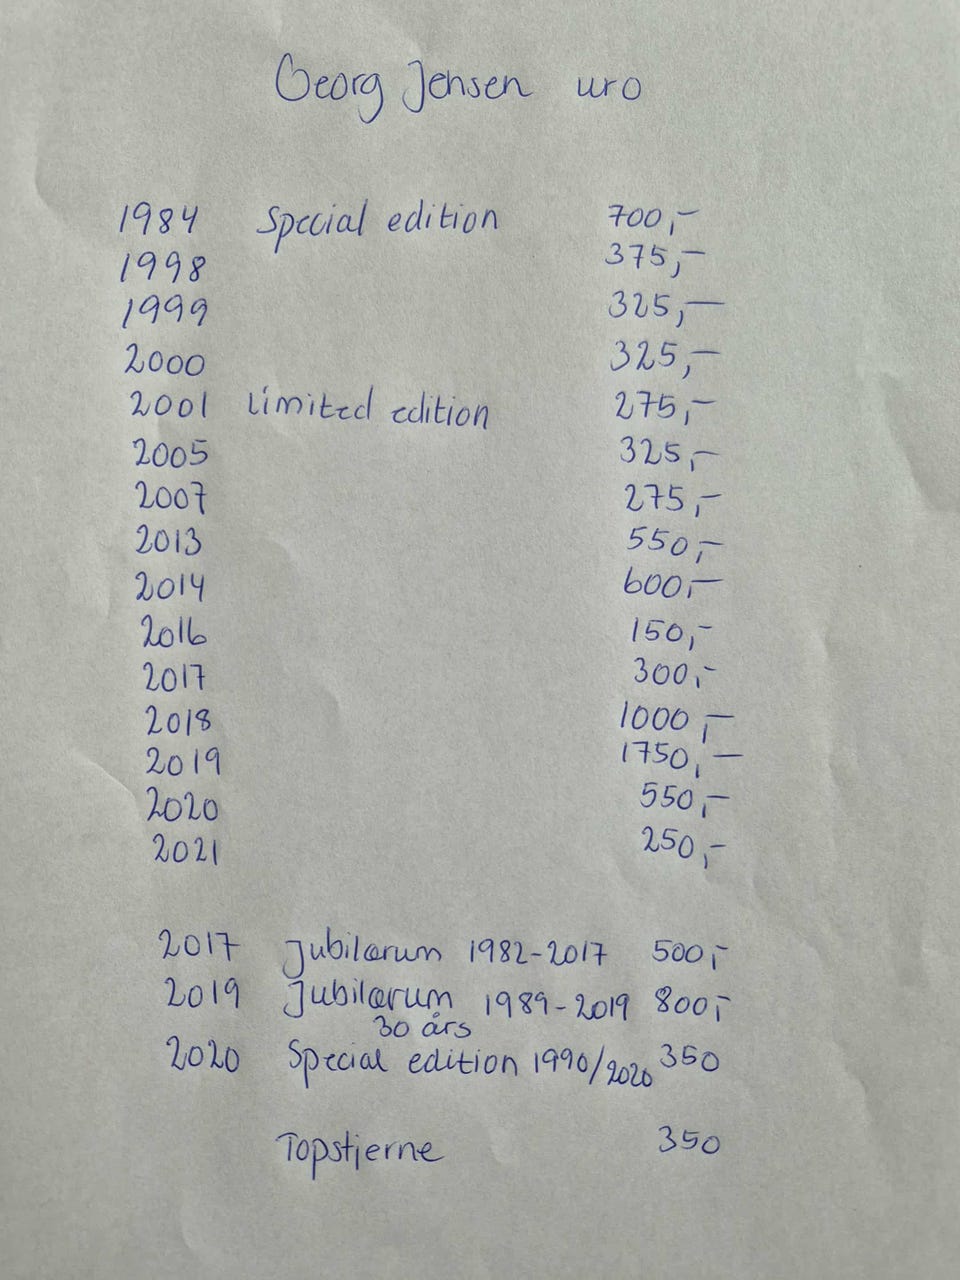 Georg Jensen uro
1984 Special edition 700,-
1998 375,-
1999 325,-
2000 325,-
2001 Limited edition 275,-
2005 325,-
2007 275,-
2013 550,-
2014 600,-
2016 150,-
2017 300,-
2018 1000,-
2019 1750,-
2020 550,-
2021 250,-
2017 Jubilærum 1982-2017 500,-
2019 Jubilærum 1989-2019 800,-
30 års
2020 Special edition 1990/2020 350
Topstjerne 350